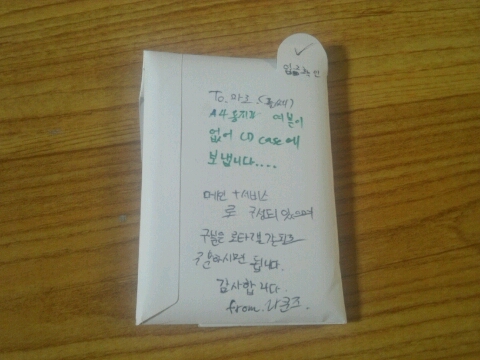 입금확인
To. 마로.(둘째)
A4용지가 여분이
없어 CD case에
보냅니다....
메인 + 서비스
로 구성되 있으며
구분은
구분하시면 됩니다.
감사합니다.
from.